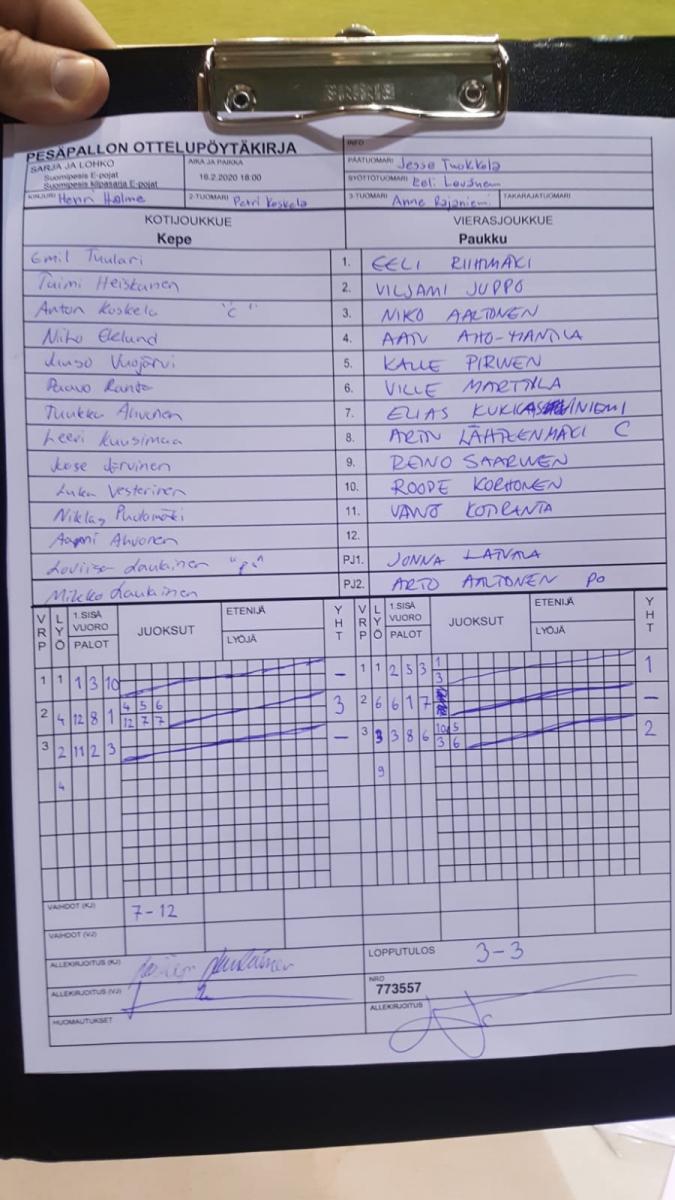 PESÄPALLON OTTELUPÖYTÄKIRJA
INFO
SARJA JA LOHKO
Suomipesis E-pojat
Suomipesis kilpasarja E-pojat
AIKA JA PAIKKA
16.2.2020 18:00
PÄÄTUOMARI Jesse Tuokkola
SYÖTTÖTUOMARI Eeli
KIRJURI Henri Holme
2-TUOMARI Petri Koskela
3-TUOMARI Anne Rajaniemi
TAKARAJATUOMARI
KOTIJOUKKUE
Kepe
VIERASJOUKKUE
Paukku
Emil Tuulari 1. EELI RIIHIMÄKI
Taimi Heiskanen 2. VILJAMI JUPPO
Anton Koskela "C" 3. NIKO AALTONEN
Niko Eklund 4. AATU AHO-MANTILA
Vuojärvi 5. KALLE PIRINEN
Paavo Ranta 6. VILLE MARTTILA
Tuukka Ahvonen 7. ELIAS
Leevi Kuusimaa 8. LÄHTEENMÄKI C
Järvinen 9. REINO SAARINEN
Luka Vesterinen 10. ROOPE KORHONEN
Niklas 11. KOIRANTA
Aapni Ahvonen 12.
Loviisa Laukainen PJ1. JONNA LATVALA
Mikko Laukainen PJ2. ARTO AALTONEN PO
VRP LYÖ 1.SISÄ VUORO PALOT JUOKSUT ETENIJÄ LYÖJÄ YHT VRP LYÖ 1.SISÄ VUORO PALOT JUOKSUT ETENIJÄ LYÖJÄ YHT
1 1 1 3 10 – 1 1 2 5 3 1 1
3
2 4 12 8 1 4 5 6 3 2 6 6 1 7 –
12 7 7
3 2 11 2 3 – 3 3 3 8 6 10 5 2
3 6
4 9
VAIHDOT (KJ) 7-12
VAIHDOT (VJ)
ALLEKIRJOITUS (KJ)
LOPPUTULOS 3-3
ALLEKIRJOITUS (VJ)
NRO
773557
HUOMAUTUKSET
ALLEKIRJOITUS